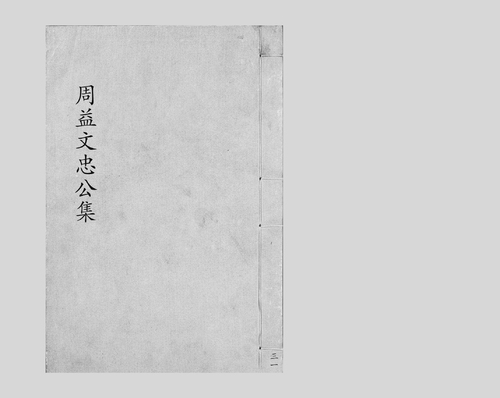 周益文忠公集
三一